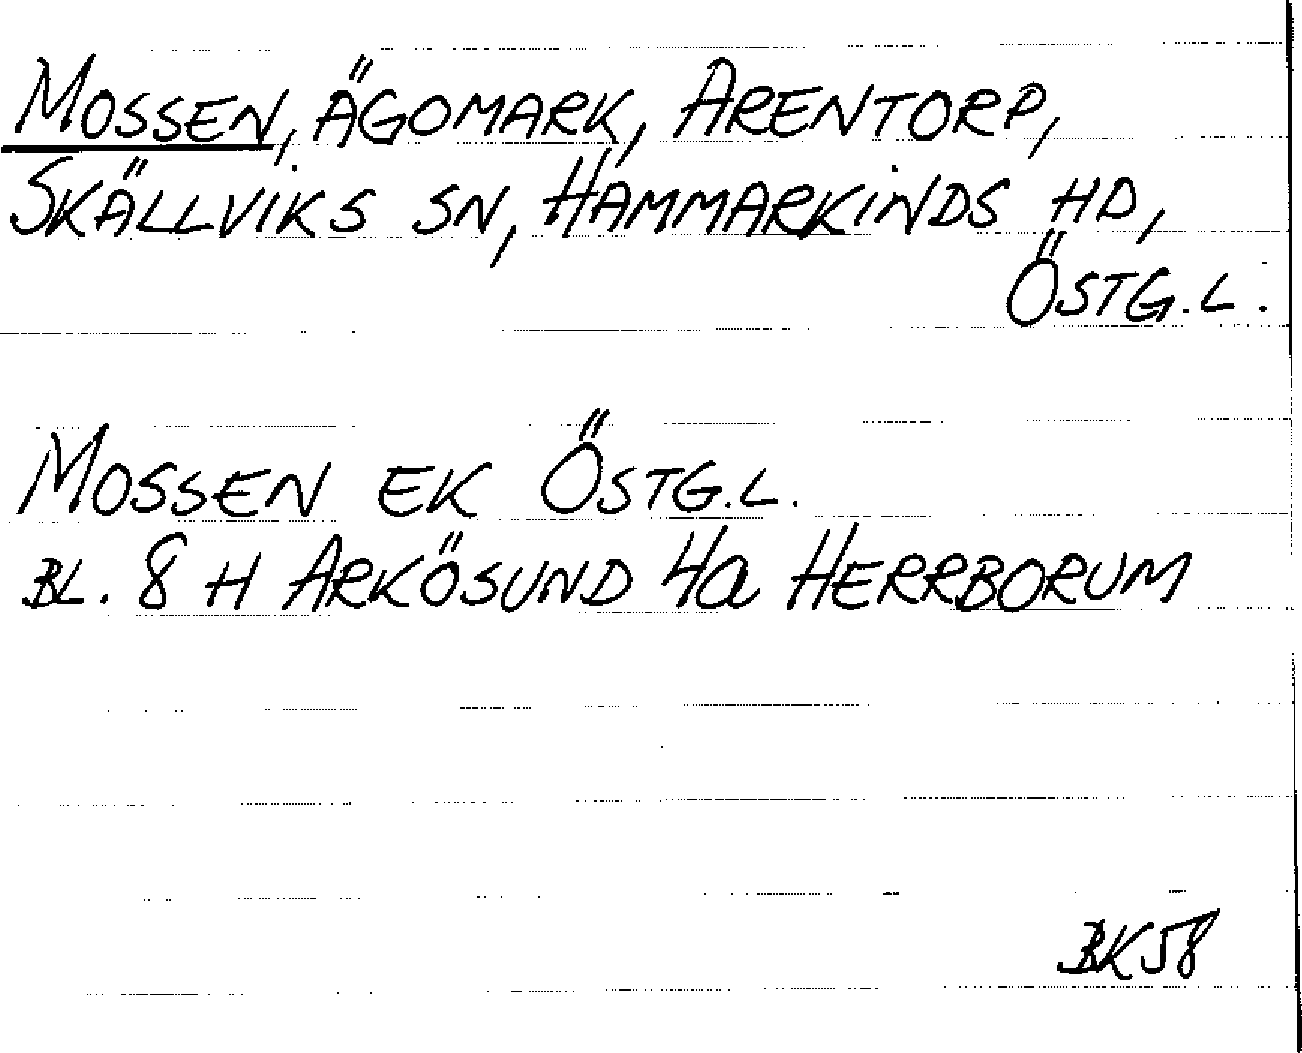 MOSSEN, ÄGOMARK, ARENTORP,
SKÄLLVIKS SN, HAMMARKINDS HD,
ÖSTG.L.
MOSSEN EK ÖSTG.L.
BL. 8 H ARKÖSUND 4a HERRBORUM
BK58